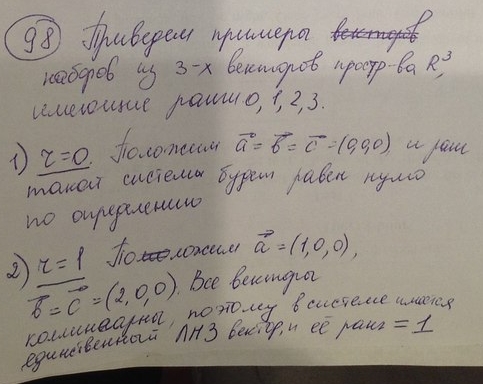 98 Приведем примеры векторов
наборов из 3-х векторов простр-ва R³,
имеющие ранги 0, 1, 2, 3.
1) r=0. Положим a⃗ = b⃗ = c⃗ = (0,0,0), и ранг
такой системы будет равен нулю
по определению
2) r=1 Положим a⃗ = (1,0,0),
b⃗ = c⃗ = (2,0,0). Все векторы
коллинеарны, поэтому в системе имеется
единственный ЛНЗ вектор, и её ранг = 1